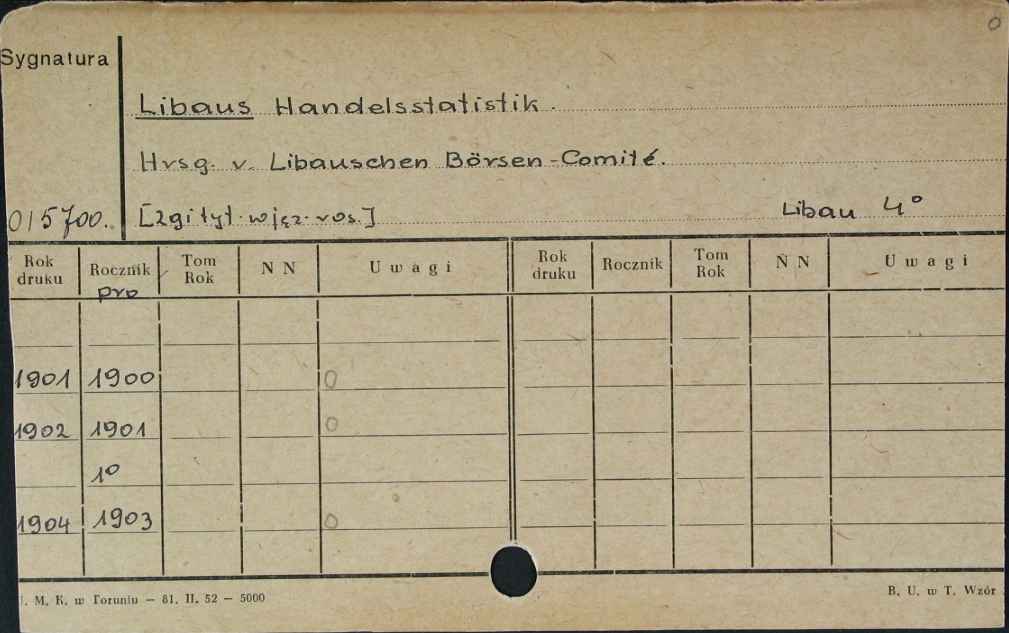 0
Sygnatura
Libaus Handelsstatistik.
Hrsg. v. Libauschen Börsen-Comité.
015700. [2gi tyt. w jęz. ros.] Libau 4°
Rok druku Rocznik Tom Rok N N U w a g i Rok druku Rocznik Tom Rok N N U w a g i
pro
1901 1900 0
1902 1901 0
10
1904 1903 0
. M. K. w Toruniu — 81. II. 52 — 5000 B. U. w T. Wzór